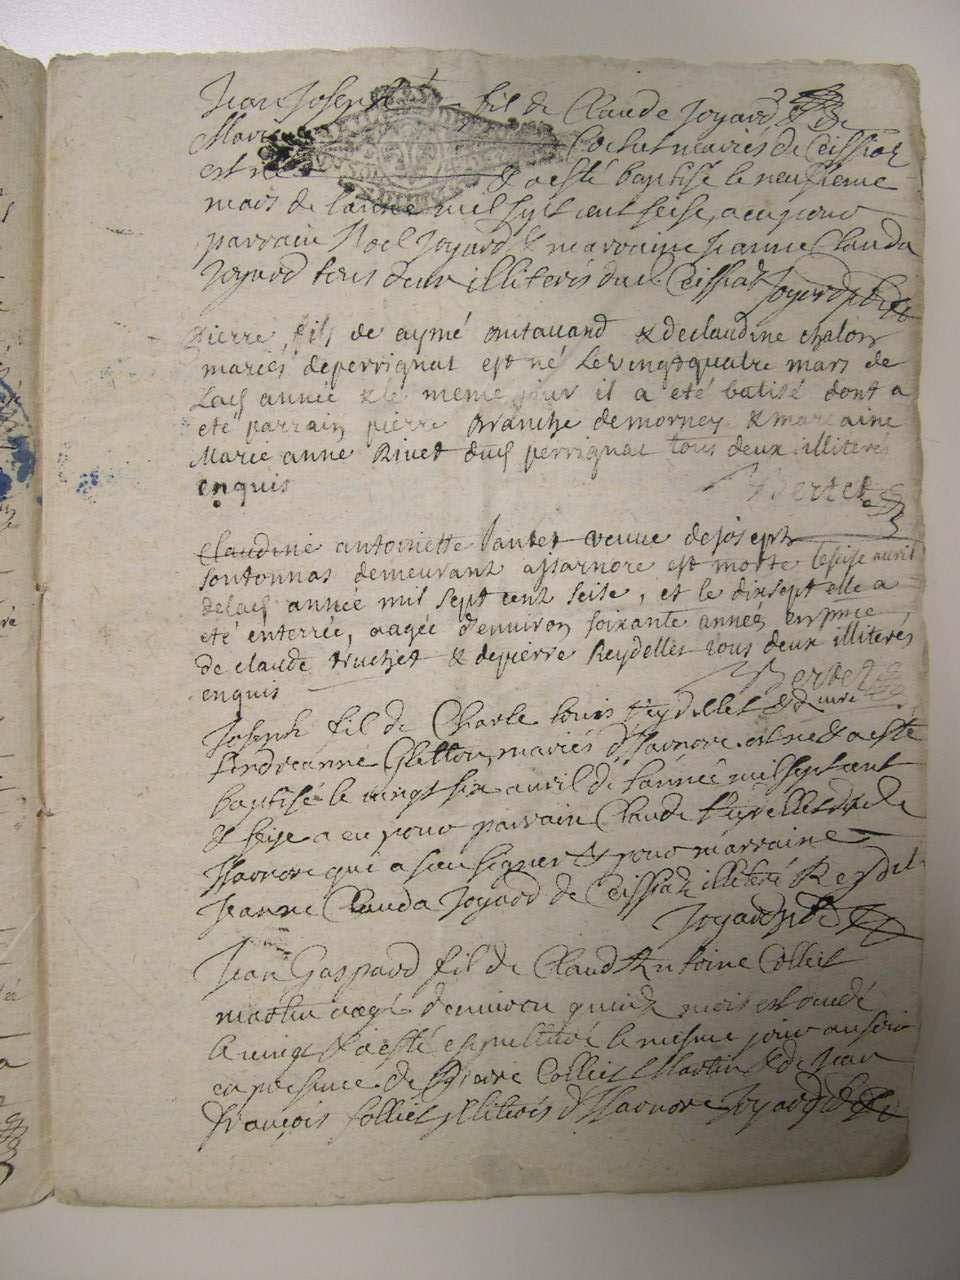 Jean Joseph fil de Claude Joyard & de
Marie Cochet mariés de Ceissiat
est né & a esté baptisé le neufieme
mars de l'année mil sept cent seise, a eu pour
parrain Noel Joyard & marraine Jeanne Clauda
Joyard tous deux illiterés dud. Ceissiat Joyard
pierre, fils de aymé & de claudine chalon
mariés de perrignat est né le vingt quatre mars de
lad année & le meme jour il a eté batisé dont a
eté parrain pierre branche de morney & marraine
Marie anne Rivet dud perrignat tous deux illiterés
enquis Bertet
claudine antoinette vantet veuve de joseph
sontonnas demeurant a Isarnore est morte le seise avril
de lad année mil sept cent seise, et le dixsept elle a
eté enterrée, aagée d'environ soixante années en pnce
de claude truchet & de pierre Reydellet tous deux illiterés
enquis Bertet
Joseph fil de Charle louis Reydellet &
andreanne Gletton mariés d'Isarnore est né & a esté
baptisé le vingt six avril de l'année mil sept cent
& seise a eu pour parrain Claude Reydellet de
Isarnore qui a sceu signer & pour marraine
Jeanne Clauda Joyard de Ceissiat illiteré Reydel
Joyard
Jean Gaspard fil de Claud Antoine Colliet
martin aagé d'environ quinze mois est decedé
le vingt & a esté espulturé le mesme jour au soir
en presence de Pierre Colliet Martin & de Jean
François folliet illiterés d'Isarnore Joyard